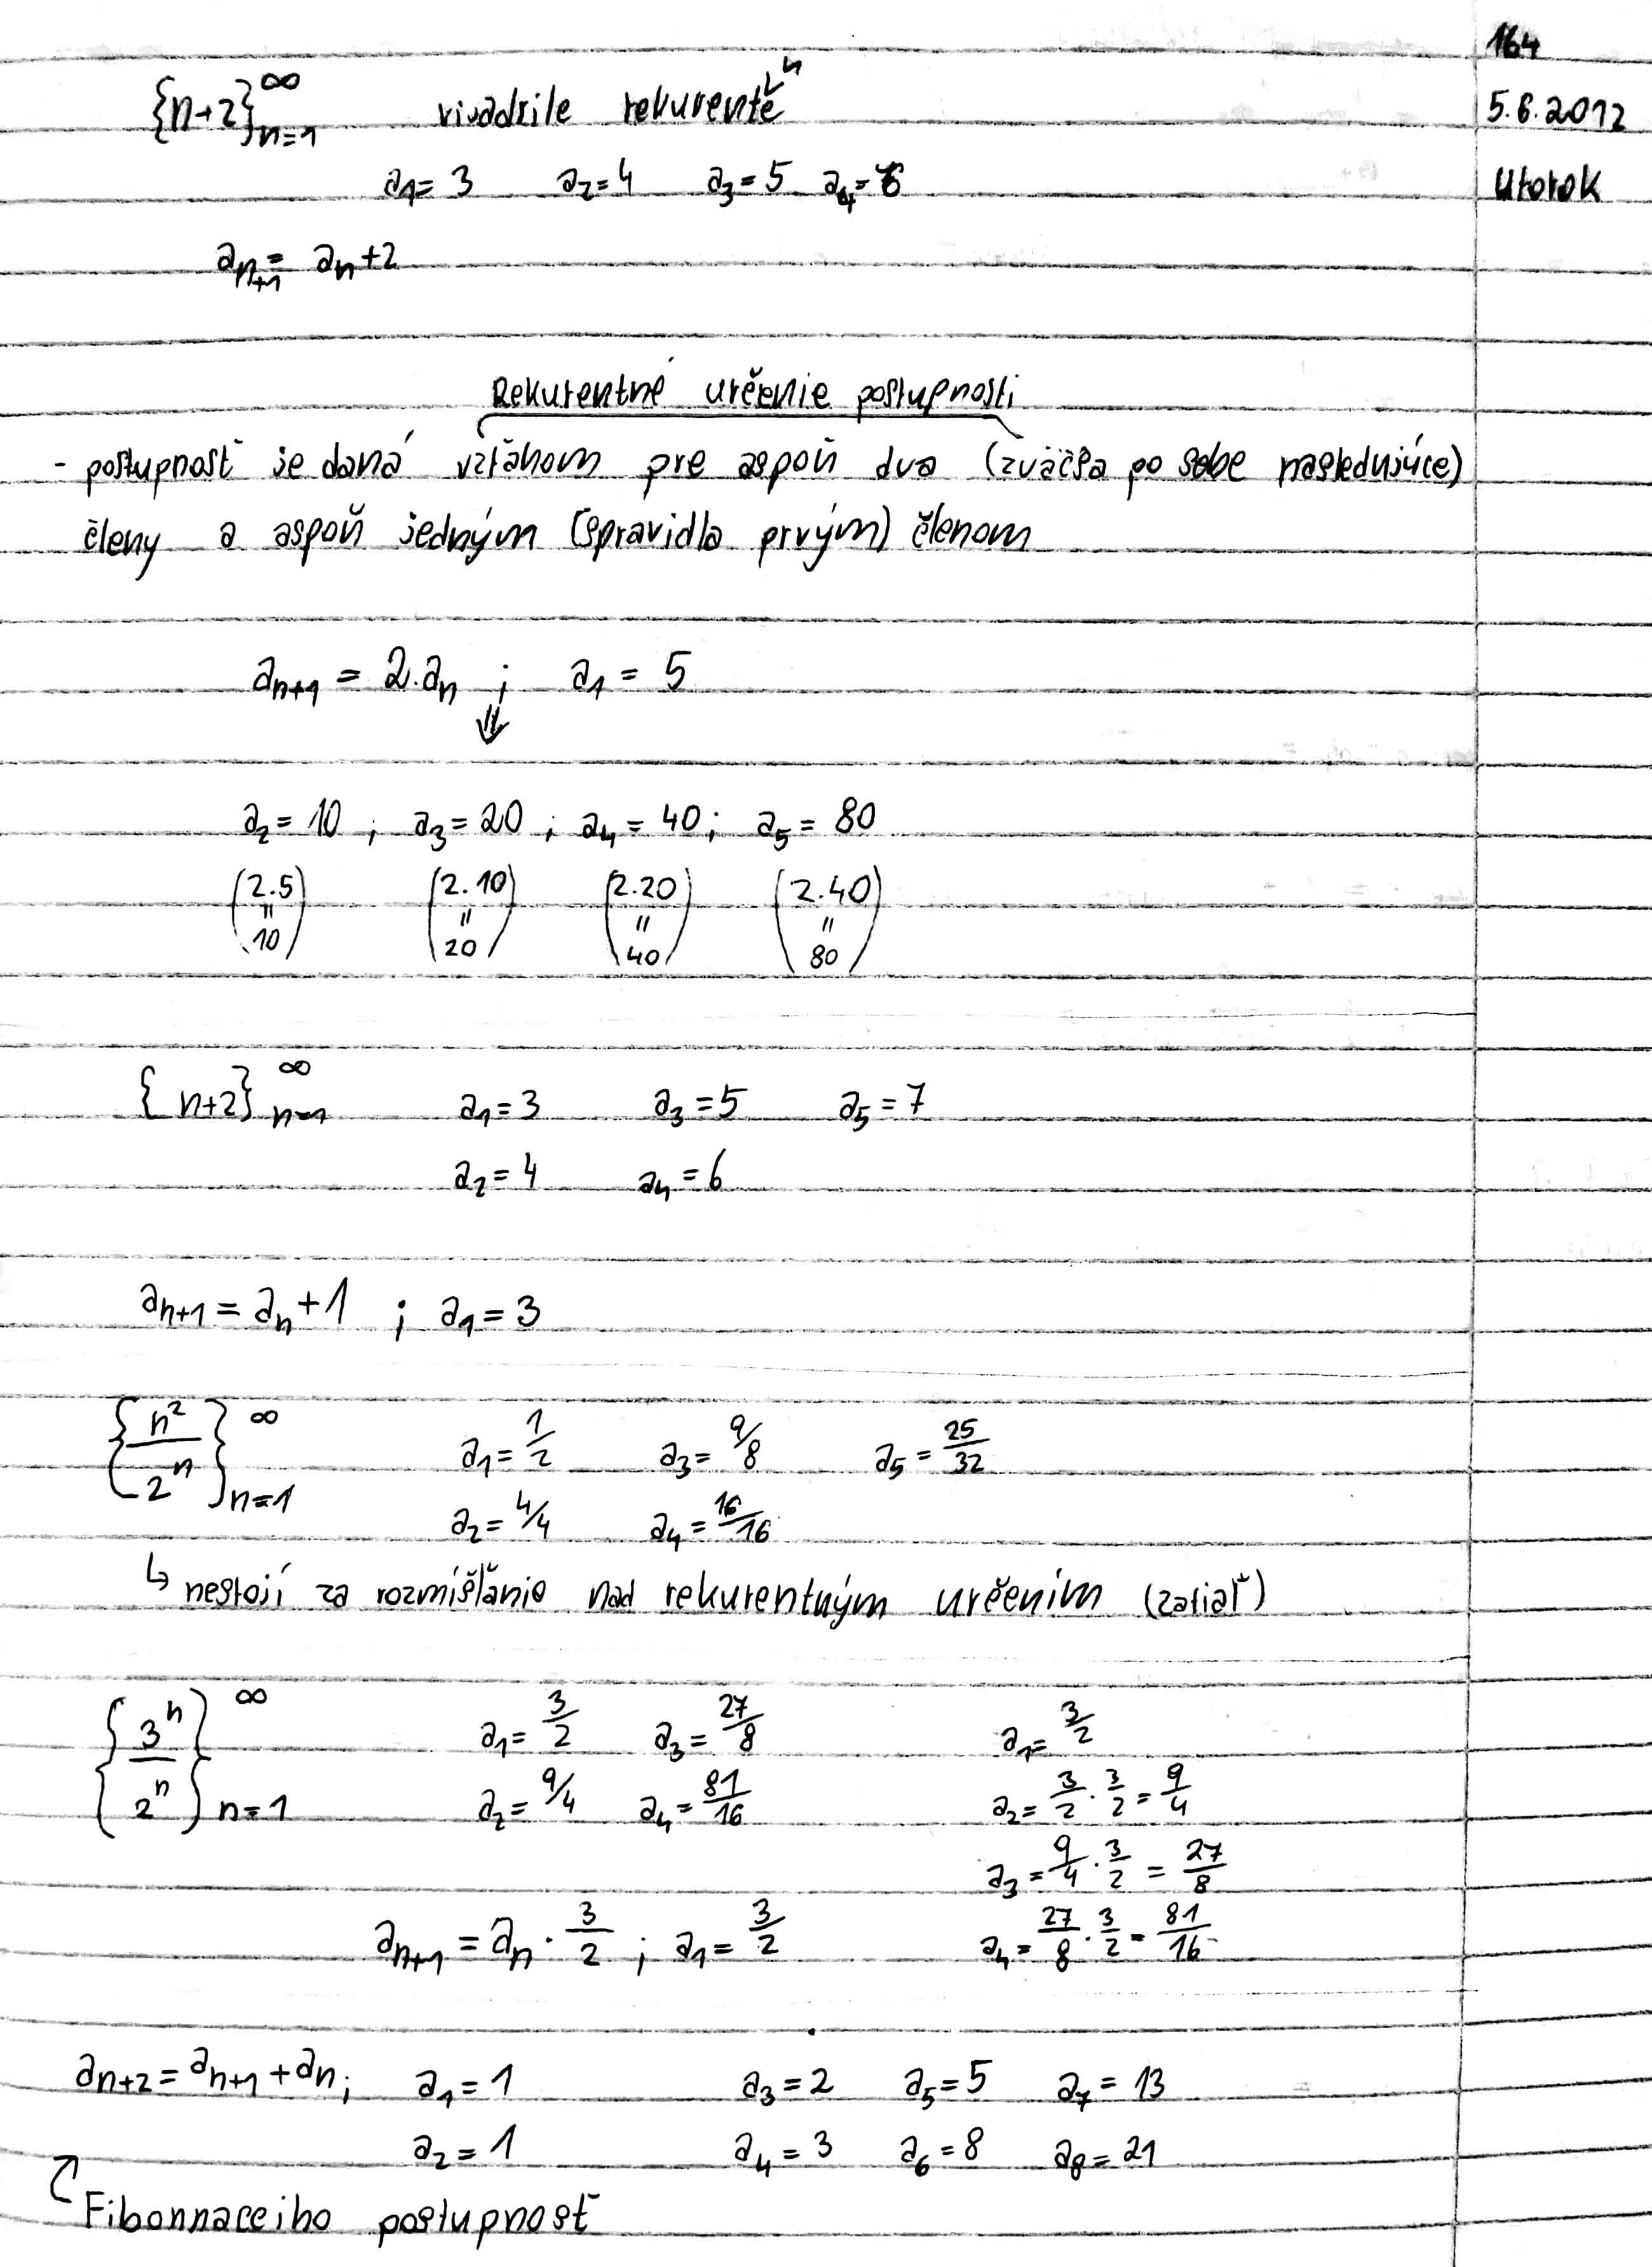 164
{n+2}∞n=1 rekurentě
5.6.2012
a1=3 a2=4 a3=5 a4=6
Utorok
an+1= an+2
Rekurentné určenie postupnosti
- postupnosť je daná vzťahom pre aspoň dva (zväčša po sebe nasledujúce)
členy a aspoň jedným (spravidla prvým) členom
an+1 = 2.an ; a1 = 5
⇓
a2 = 10 ; a3 = 20 ; a4 = 40; a5 = 80
(2.5 = 10) (2.10 = 20) (2.20 = 40) (2.40 = 80)
{n+2}∞n=1 a1=3 a3=5 a5=7
a2=4 a4=6
an+1 = an+1 ; a1=3
{n²/2ⁿ}∞n=1 a1=1/2 a3=9/8 a5=25/32
a2=4/4 a4=16/16
↳ nestojí za rozmišľánie nad rekurentným určením (zatiaľ)
{3ⁿ/2ⁿ}∞n=1 a1=3/2 a3=27/8 a1=3/2
a2=9/4 a4=81/16 a2=3/2·3/2=9/4
a3=9/4·3/2=27/8
an+1=an·3/2 ; a1=3/2 a4=27/8·3/2=81/16
an+2=an+1+an; a1=1 a3=2 a5=5 a7=13
a2=1 a4=3 a6=8 a8=21
Fibonnaceiho postupnosť